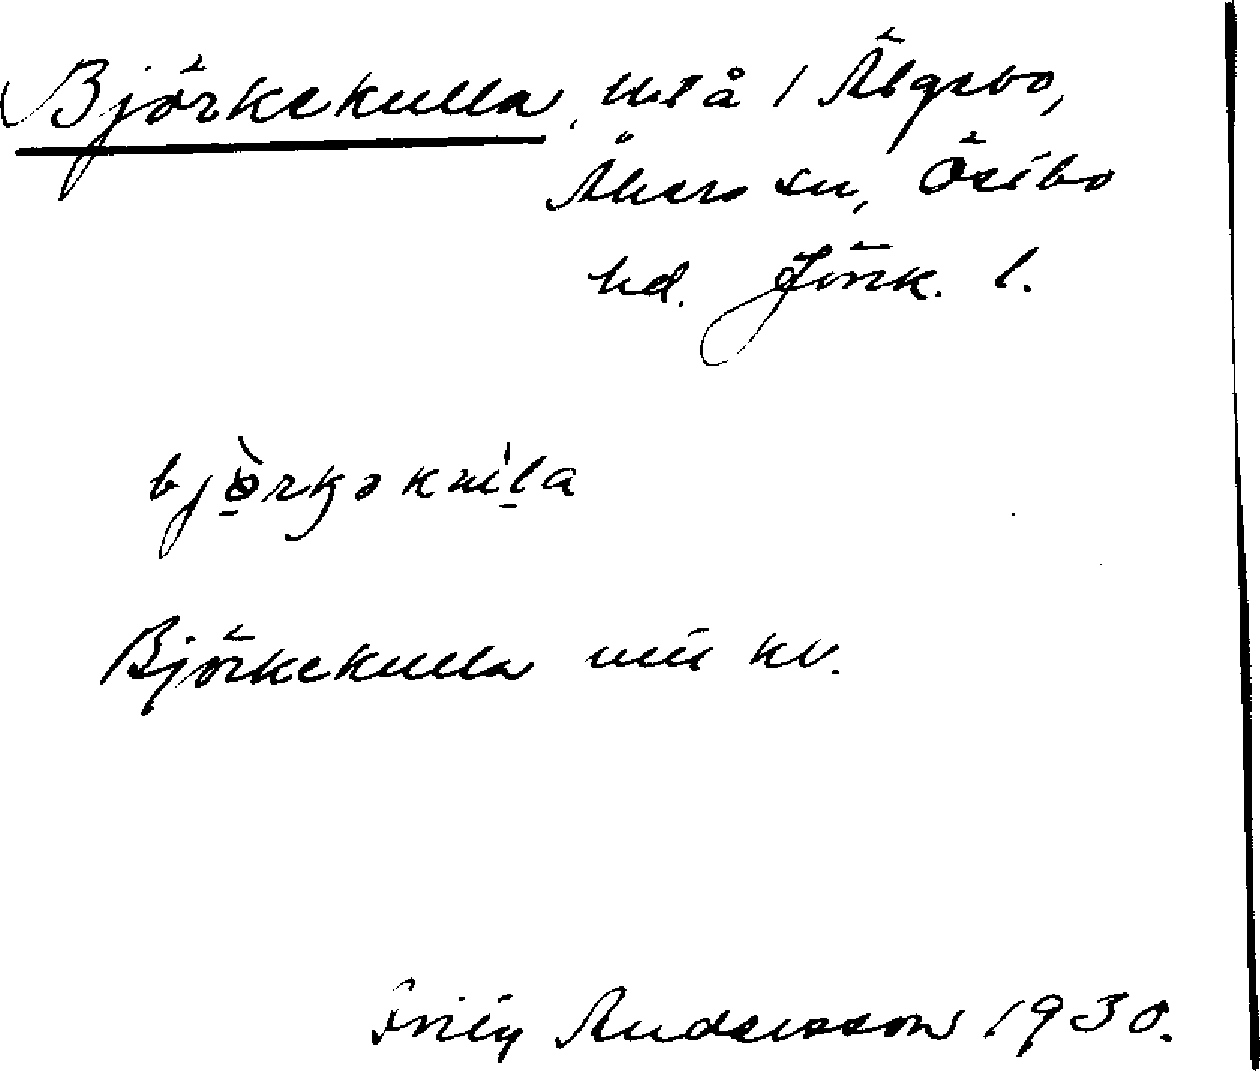 Björkekulla, utså / Älgabo,
Åkers sn, Östbo
hd. Jönk. l.
björkəkula
Björkekulla mtl kv.
Fritz Andersson 1930.